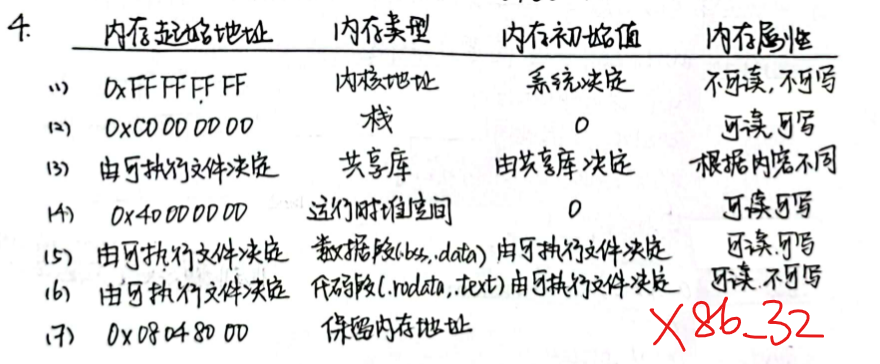 4. 内存起始地址 内存类型 内存初始值 内存属性
(1) 0xFF FF FF FF 内核地址 系统决定 不可读,不可写
(2) 0xC0 00 00 00 栈 0 可读.可写
(3) 由可执行文件决定 共享库 由共享库决定 根据内容不同
(4) 0x40 00 00 00 运行时堆空间 0 可读可写
(5) 由可执行文件决定 数据段(.bss,.data) 由可执行文件决定 可读.可写
(6) 由可执行文件决定 代码段(.rodata,.text) 由可执行文件决定 可读.不可写
(7) 0x08 04 80 00 保留内存地址
X86_32